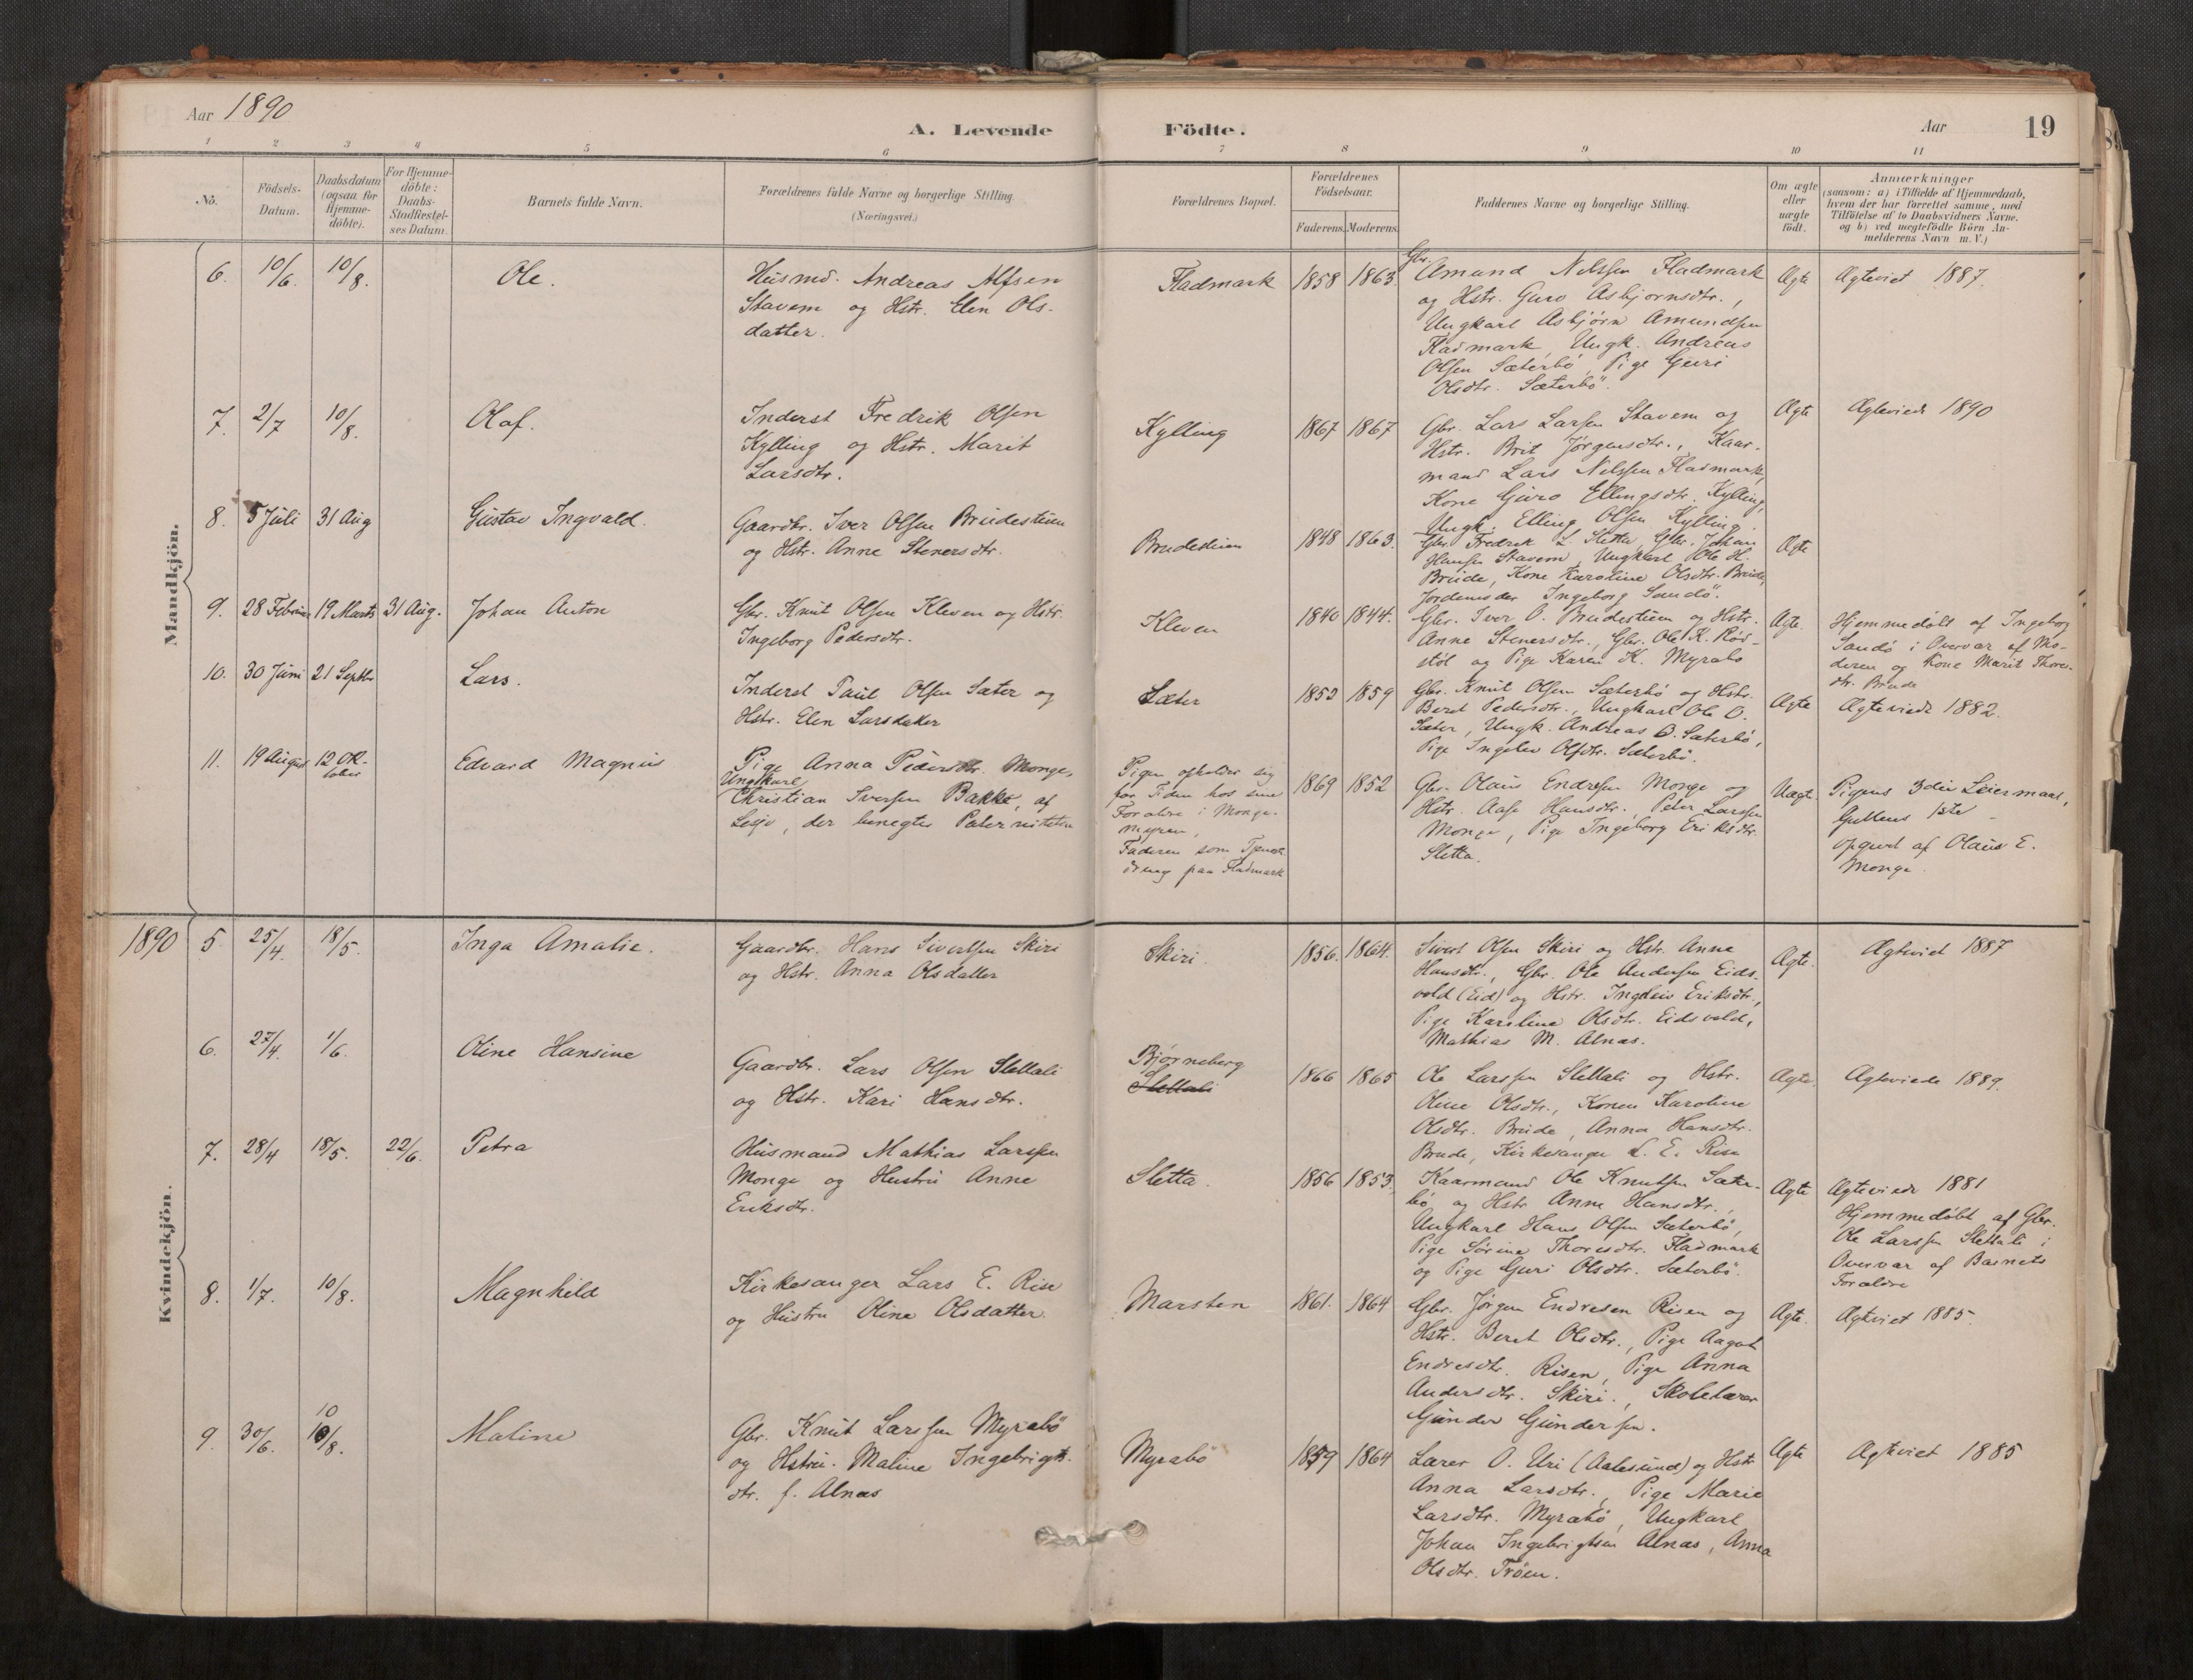 Aar 1890
A. Levende Födte.
Aar
19
1 2 3 4 5 6 7 8 9 10 11
No.
Födsels-Datum.
Daabsdatum (ogsaa for Hjemme-döbte).
For Hjemme-döbte: Daabs-Stadfæstel-ses Datum.
Barnets fulde Navn.
Forældrenes fulde Navne og borgerlige Stilling. (Næringsvei.)
Forældrenes Bopæl.
Forældrenes Födselsaar.
Faderens. Moderens.
Faddernes Navne og borgerlige Stilling.
Om ægte eller uægte födt.
Anmærkninger
(saasom: a) i Tilfælde af Hjemmedaab,
hvem der har forrettet samme, med
Tilföielse af to Daabsvidners Navne.
og b) ved uægtefödte Börn An-
melderens Navn m. V.)
Mandkjön.
6. 10/6. 10/8. Ole.
Husmd. Andreas Alfsen
Stavem og Hstr. Elen Ols-
datter.
Fladmark 1858 1863.
Gbr.
Amund Nilssen Fladmark
og Hstr. Guro Asbjornsdtr.,
Ungkarl Asbjörn Amundsen
Fladmark, Ungk. Andreas
Olsen Sæterbö, Pige Guri
Olsdtr. Sæterbö.
Ægte Ægteviet 1887.
7. 2/7 10/8. Olaf.
Inderst Fredrik Olsen
Kylling og Hstr. Marit
Larsdtr.
Kylling 1867 1867
Gbr. Lars Larsen Stavem og
Hstr. Brit Jørgensdtr., Kaar-
mand Lars Nilssen Fladmark,
Kone Guro Ellingsdtr. Kylling,
Ungk. Elling Olsen Kylling.
Ægte Ægteviede 1890
8. 5 Juli 31 Aug Gustav Ingvald.
Gaardbr. Iver Olsen Brudestuen
og Hstr. Anne Stenersdtr.
Brudestuen 1848 1863.
Gbr. Fredrik L. Sletta, Gbr. Johan
Hansen Stavem, Ungkarl Ole H.
Brude, Kone Karoline Olsdtr. Brude,
Jordemoder Ingeborg Sandö.
Ægte
9. 28 Februar 19 Marts 31 Aug. Johan Anton
Gbr. Knut Olsen Kleven og Hstr.
Ingeborg Pedersdtr.
Kleven 1840 1844.
Gbr. Iver O. Brudestuen og Hstr.
Anne Stenersdtr., Gbr. Ole K. Röd-
stöl og Pige Karen K. Myrabö
Ægte.
Hjemmedöbt af Ingeborg
Sandö i Overvær af Mo-
deren og Kone Marit Thores-
dtr. Brude
10. 30 Juni 21 Septbr Lars.
Inderst Paul Olsen Sæter og
Hstr. Elen Larsdatter
Sæter 1852 1859
Gbr. Knut Olsen Sæterbö og Hstr.
Beret Pedersdtr., Ungkarl Ole O.
Sæter, Ungk. Andreas O. Sæterbö,
Pige Ingelev Olsdtr. Sæterbö.
Ægte Ægteviede 1882.
11. 19 August 12 Ok-tober Edvard Magnus
Pige Anna Pedersdtr. Monge,
Ungkarl
Christian Iversen Bakke, af
Lesje, der benegter Paterniteten
Pigen opholder sig
for Tiden hos sine
Forældre i Monge-
myren,
Faderen som Tjeneste-
dreng paa Fladmark
1869 1852
Gbr. Olaus Endresen Monge og
Hstr. Aase Hansdtr., Peter Larssen
Monge, Pige Ingeborg Eriksdtr.
Sletta.
Uægte.
Pigens 3die Leiermaal,
Guttens 1ste
opgivet af Olaus E.
Monge.
Kvindekjön.
1890 5. 25/4. 18/5. Inga Amalie.
Gaardbr. Hans Sivertsen Skiri
og Hstr. Anna Olsdatter
Skiri. 1856. 1864.
Sivert Olsen Skiri og Hstr. Anne
Hansdtr., Gbr. Ole Andersen Eids-
vold (Eid) og Hstr. Ingeleiv Eriksdtr.,
Pige Karoline Olsdtr. Eidsvold,
Mathias M. Alnæs.
Ægte. Ægteviet 1887
6. 27/4. 1/6. Oline Hansine
Gaardbr. Lars Olsen Slettali
og Hstr. Kari Hansdtr.
Bjørneberg
Slettali
1866 1865
Ole Larssen Slettali og Hstr.
Oline Olsdtr., Konen Karoline
Olsdtr. Brude, Anna Hansdtr.
Brude, Kirkesanger L. E. Rise
Ægte. Ægteviede 1889.
7. 28/4 18/5. 22/6. Petra
Husmand Mathias Larssen
Monge og Hustru Anne
Eriksdtr.
Sletta. 1856 1853.
Kaarmand Ole Knutsen Sæter-
bö og Hstr Anne Hansdtr.,
Ungkarl Hans Olsen Sæterbö,
Pige Sörine Thoresdtr. Fladmark
og Pige Guri Olsdtr. Sæterbö.
Ægte
Ægteviede 1881
Hjemmedöbt af Gbr.
Ole Larssen Slettali i
Overvær af Barnets
Forældre
8. 1/7. 10/8. Magnhild
Kirkesanger Lars E. Rise
og Hustru Oline Olsdatter.
Marsten 1861. 1864
Gbr. Jörgen Endresen Risen og
Hstr. Beret Olsdtr., Pige Aagot
Endresdtr. Risen, Pige Anna
Andersdtr. Skiri., Skolelærer
Gunder Gundersen.
Ægte. Ægteviet 1885.
9. 30/6. 10
10/8. Maline
Gbr. Knut Larssen Myrabö
og Hstru. Maline Ingebrigts-
dtr. f. Alnæs
Myrabö 1859 1864
Lærer O. Uri (Aalesund) og Hstr
Anna Larsdtr., Pige Marie
Larsdtr. Myrabö, Ungkarl
Johan Ingebrigtsen Alnæs, Anna
Olsdtr. Tröen.
Ægte Ægteviet 1885